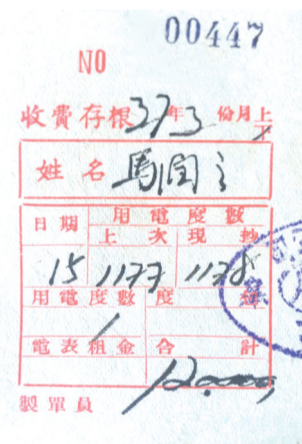 00447
NO
收費存根 37年3份月上
姓名 馬潤
日期 用電度數
上次 現抄
15 1177 1178
用電度數 度
1
電表租金 合計
12000
製單員